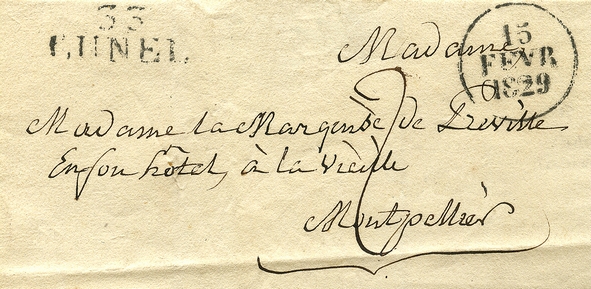 33
LUNEL
15
FEVR
1829
Madame
2
Madame la Marquise de
En son hôtel, à la Vieille
Montpellier